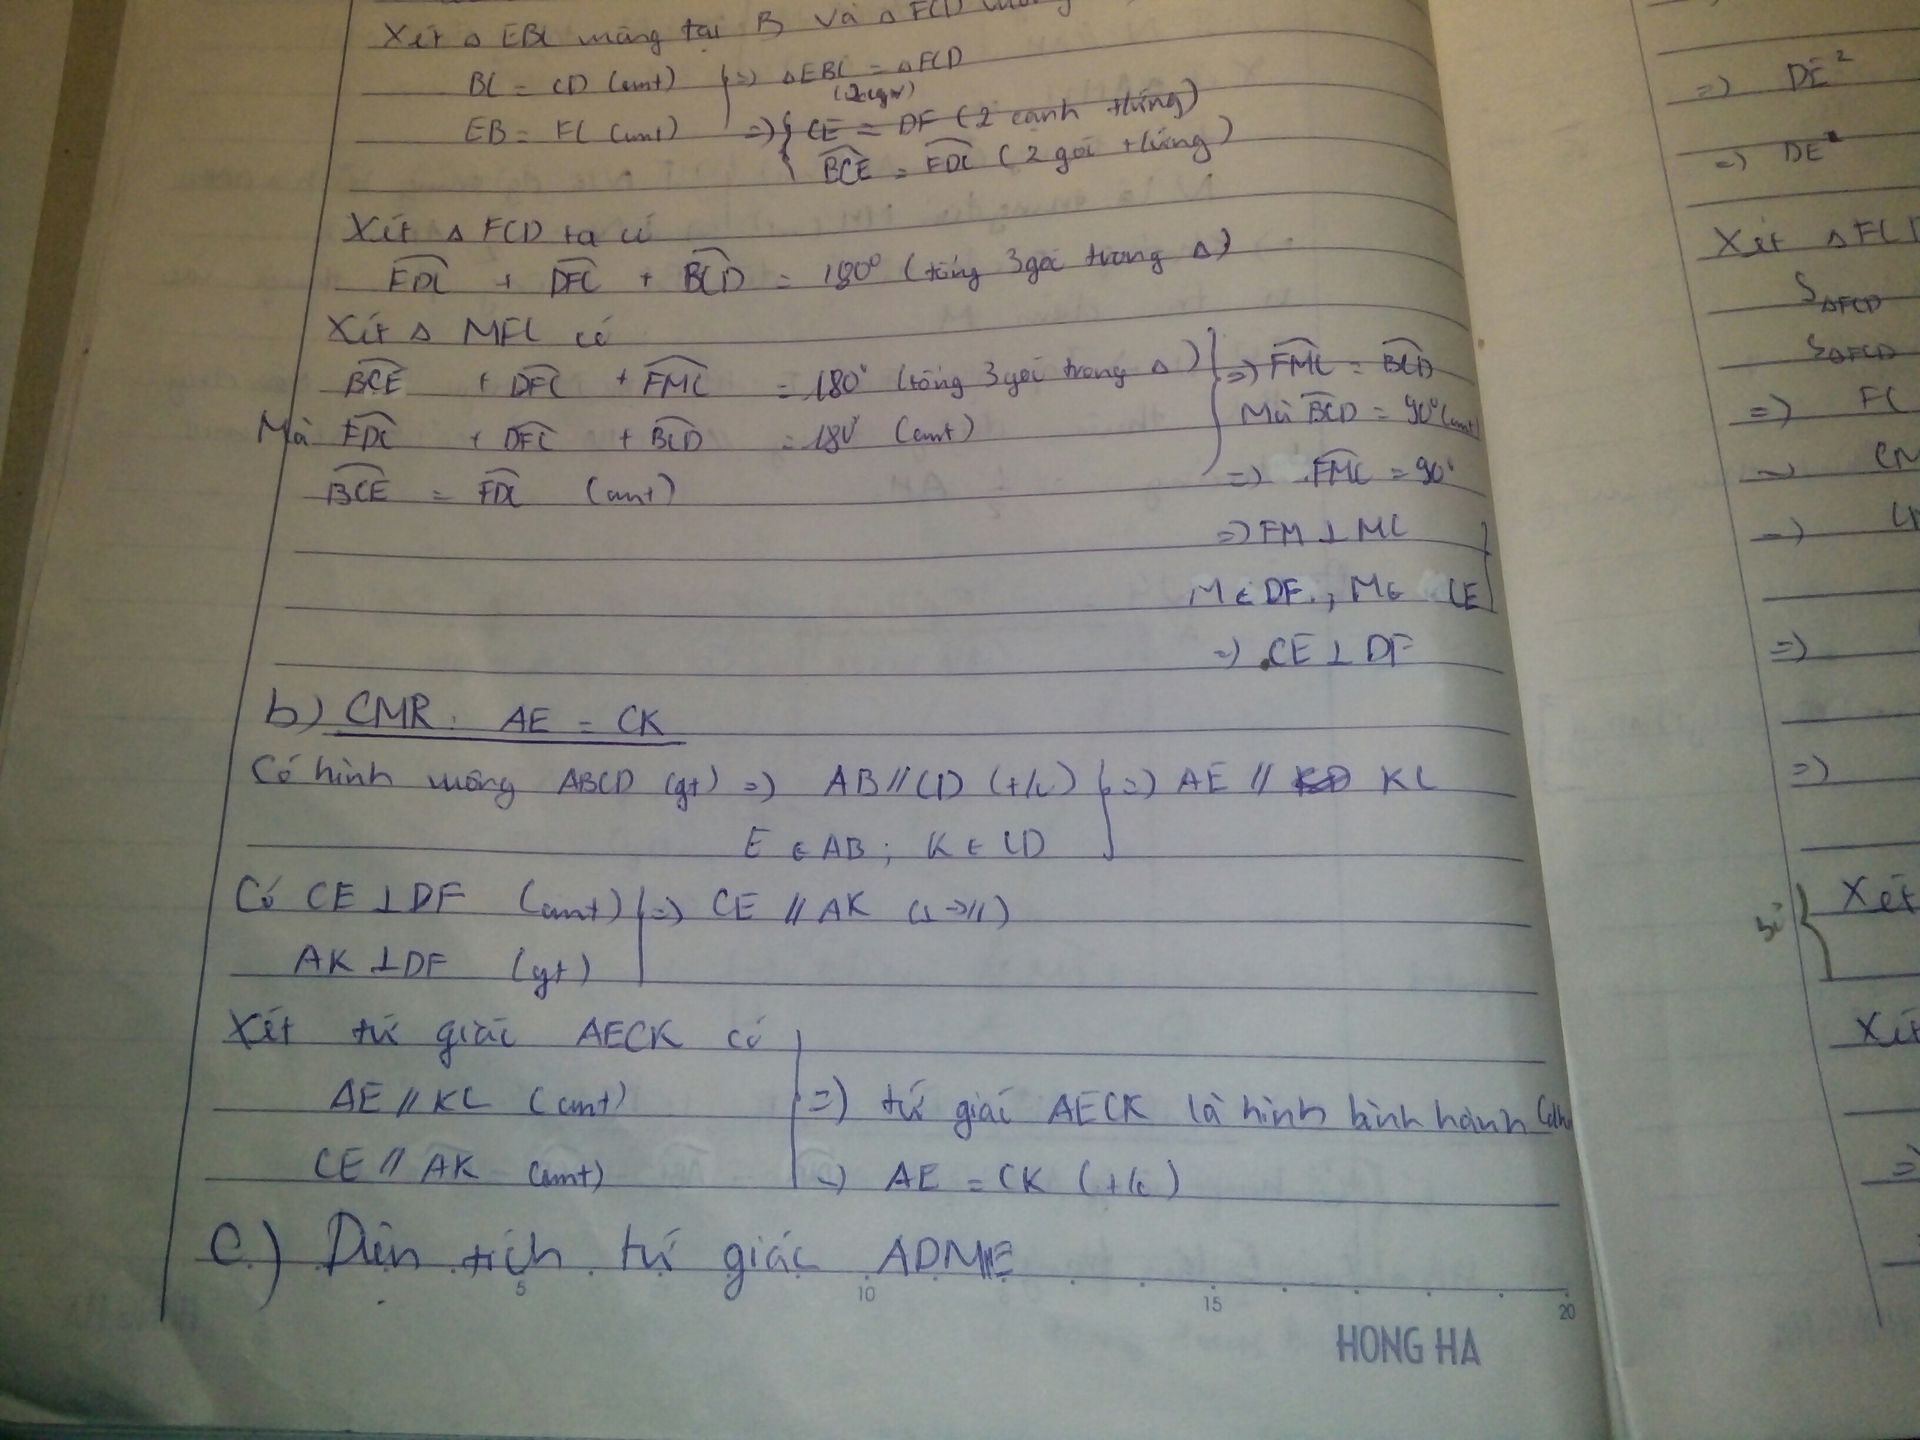 Xét Δ EBC vuông tại B và Δ FCD vuông
BC = CD (cmt) => ΔEBC = ΔFCD
(2cgv)
EB = FC (cmt) => { CE = DF (2 cạnh t/ứng)
BCE = FDC (2 góc t/ứng)
Xét Δ FCD ta có
FDC + DFC + BCD = 180° (tổng 3 góc trong Δ)
Xét Δ MFC có
BCE + DFC + FMC = 180° (tổng 3 góc trong Δ) => FMC = BCD
Mà FDC + DFC + BCD = 180° (cmt) Mà BCD = 90° (cmt)
BCE = FDC (cmt) => FMC = 90°
=> FM ⊥ MC
M ∈ DF ; M ∈ CE
=> CE ⊥ DF
b) CMR: AE = CK
Có hình vuông ABCD (gt) => AB // CD (t/c) => AE // KC
E ∈ AB ; K ∈ CD
Có CE ⊥ DF (cmt) => CE // AK (⊥ -> //)
AK ⊥ DF (gt)
Xét tứ giác AECK có
AE // KC (cmt) => tứ giác AECK là hình bình hành (dh
CE // AK (cmt) => AE = CK (t/c)
c) Diện tích tứ giác ADME
5 10 15 20
HONG HA
=> DE²
=> DE²
Xét Δ FCD
S ΔFCD
S ΔFCD
=> FC
=> CM
=>
=>
=>
Xét
Xét
=>